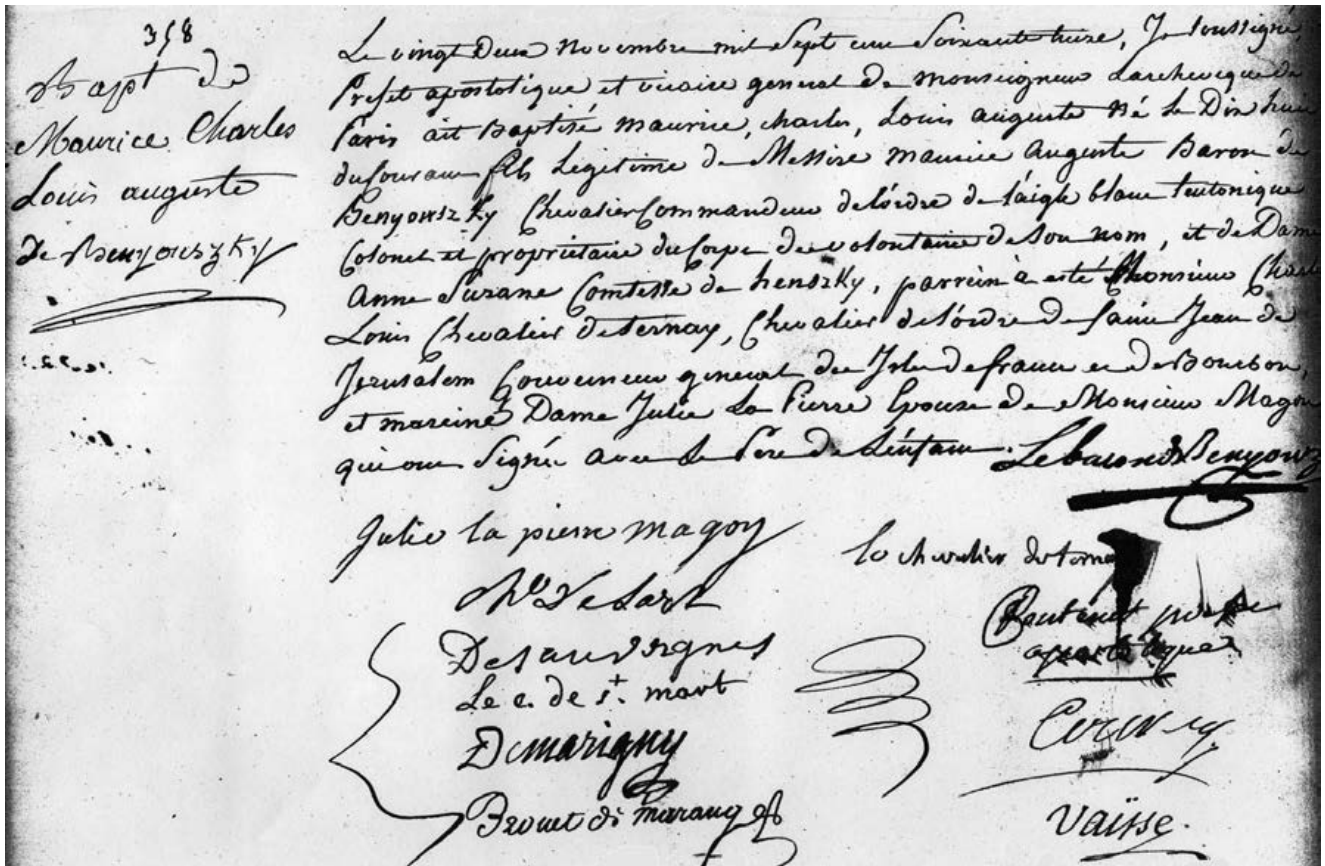 358
Bapt de
Maurice Charles
Louis auguste
de Benyowszky
Le vingt Deux Novembre mil Sept cent Soixante treize, Je soussigné,
Prefet apostolique et vicaire general de Monseigneur Larcheveque de
Paris ait Baptisé Maurice, charles, Louis auguste Né le Dix huit
du Courant fils Legitime de Messire Maurice Auguste Baron de
Benyowszky Chevalier Commandeur de lórdre de láigle blanc teutonique
Colonel et propriétaire du Corps de volontaire de Son nom, et de Dame
Anne Suzane Comtesse de henszky, parrein à esté Monsieur Charl
Louis Chevalier de ternay, Chevalier de lórdre de saint Jean de
Jerusalem Gouverneur general des Isles de france et de Bourbon,
et mareine Dame Julie La Pierre Epouse de Monsieur Magon
qui ont Signé avec le Pere de Lénfant. Le baron de Benyowz
Julie la pierre magon
le chevalier de ternay
Desauvergnes
Le c. de st. mart
Demarigny
apostolique
Vaïsse.